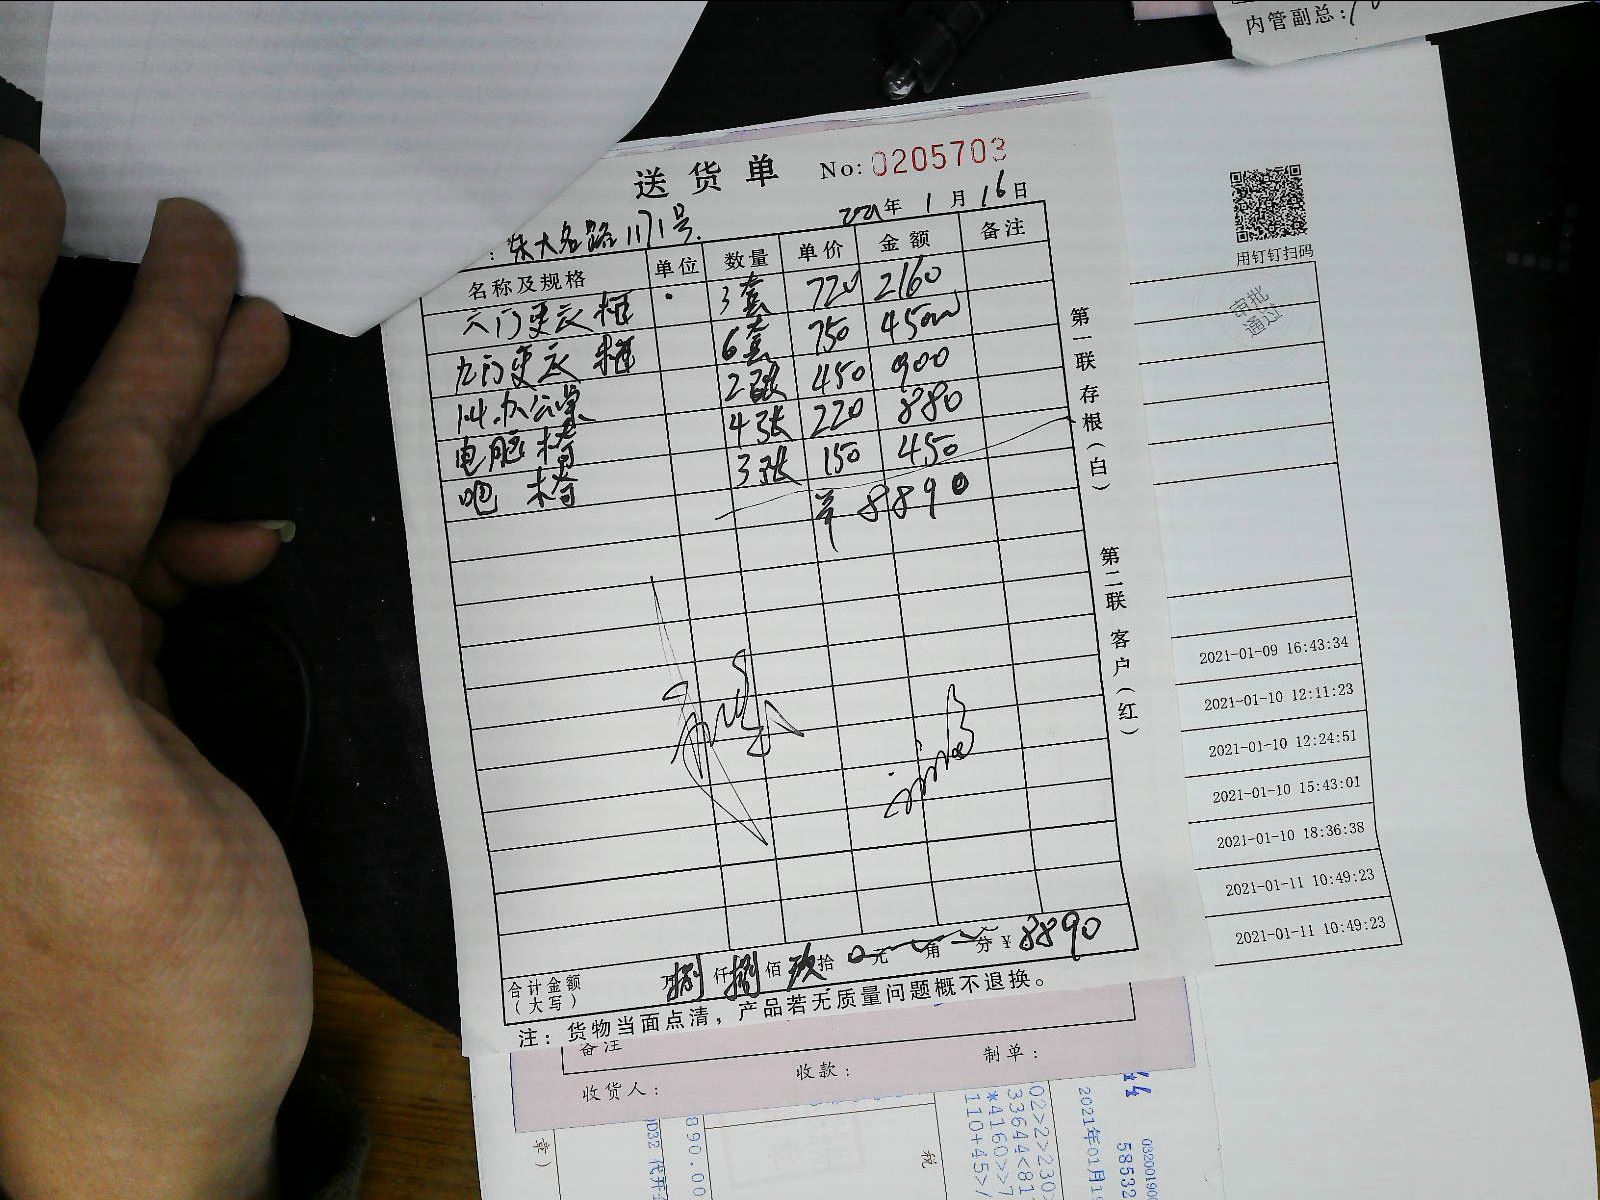 内管副总：
送货单 No: 0205703
2021年 1 月 16 日
：东大名路1171号
名称及规格 单位 数量 单价 金额 备注
六门更衣柜 3套 720 2160
九门更衣柜 6套 750 4500
1.4办公桌 2张 450 900
电脑椅 4张 220 880
吧椅 3张 150 450
¥8890
合计金额（大写） 万 捌仟 捌佰 玖拾 0元 角 分 ¥ 8890
注：货物当面点清，产品若无质量问题概不退换。
第一联 存根（白） 第二联 客户（红）
用钉钉扫码
审批通过
2021-01-09 16:43:34
2021-01-10 12:11:23
2021-01-10 12:24:51
2021-01-10 15:43:01
2021-01-10 18:36:38
2021-01-11 10:49:23
2021-01-11 10:49:23
备注
收货人： 收款： 制单：
章）
890.00
税
110+45>/
*4160>>7
33644<81
02>2>230>
2021年01月1
58532
03200190
44